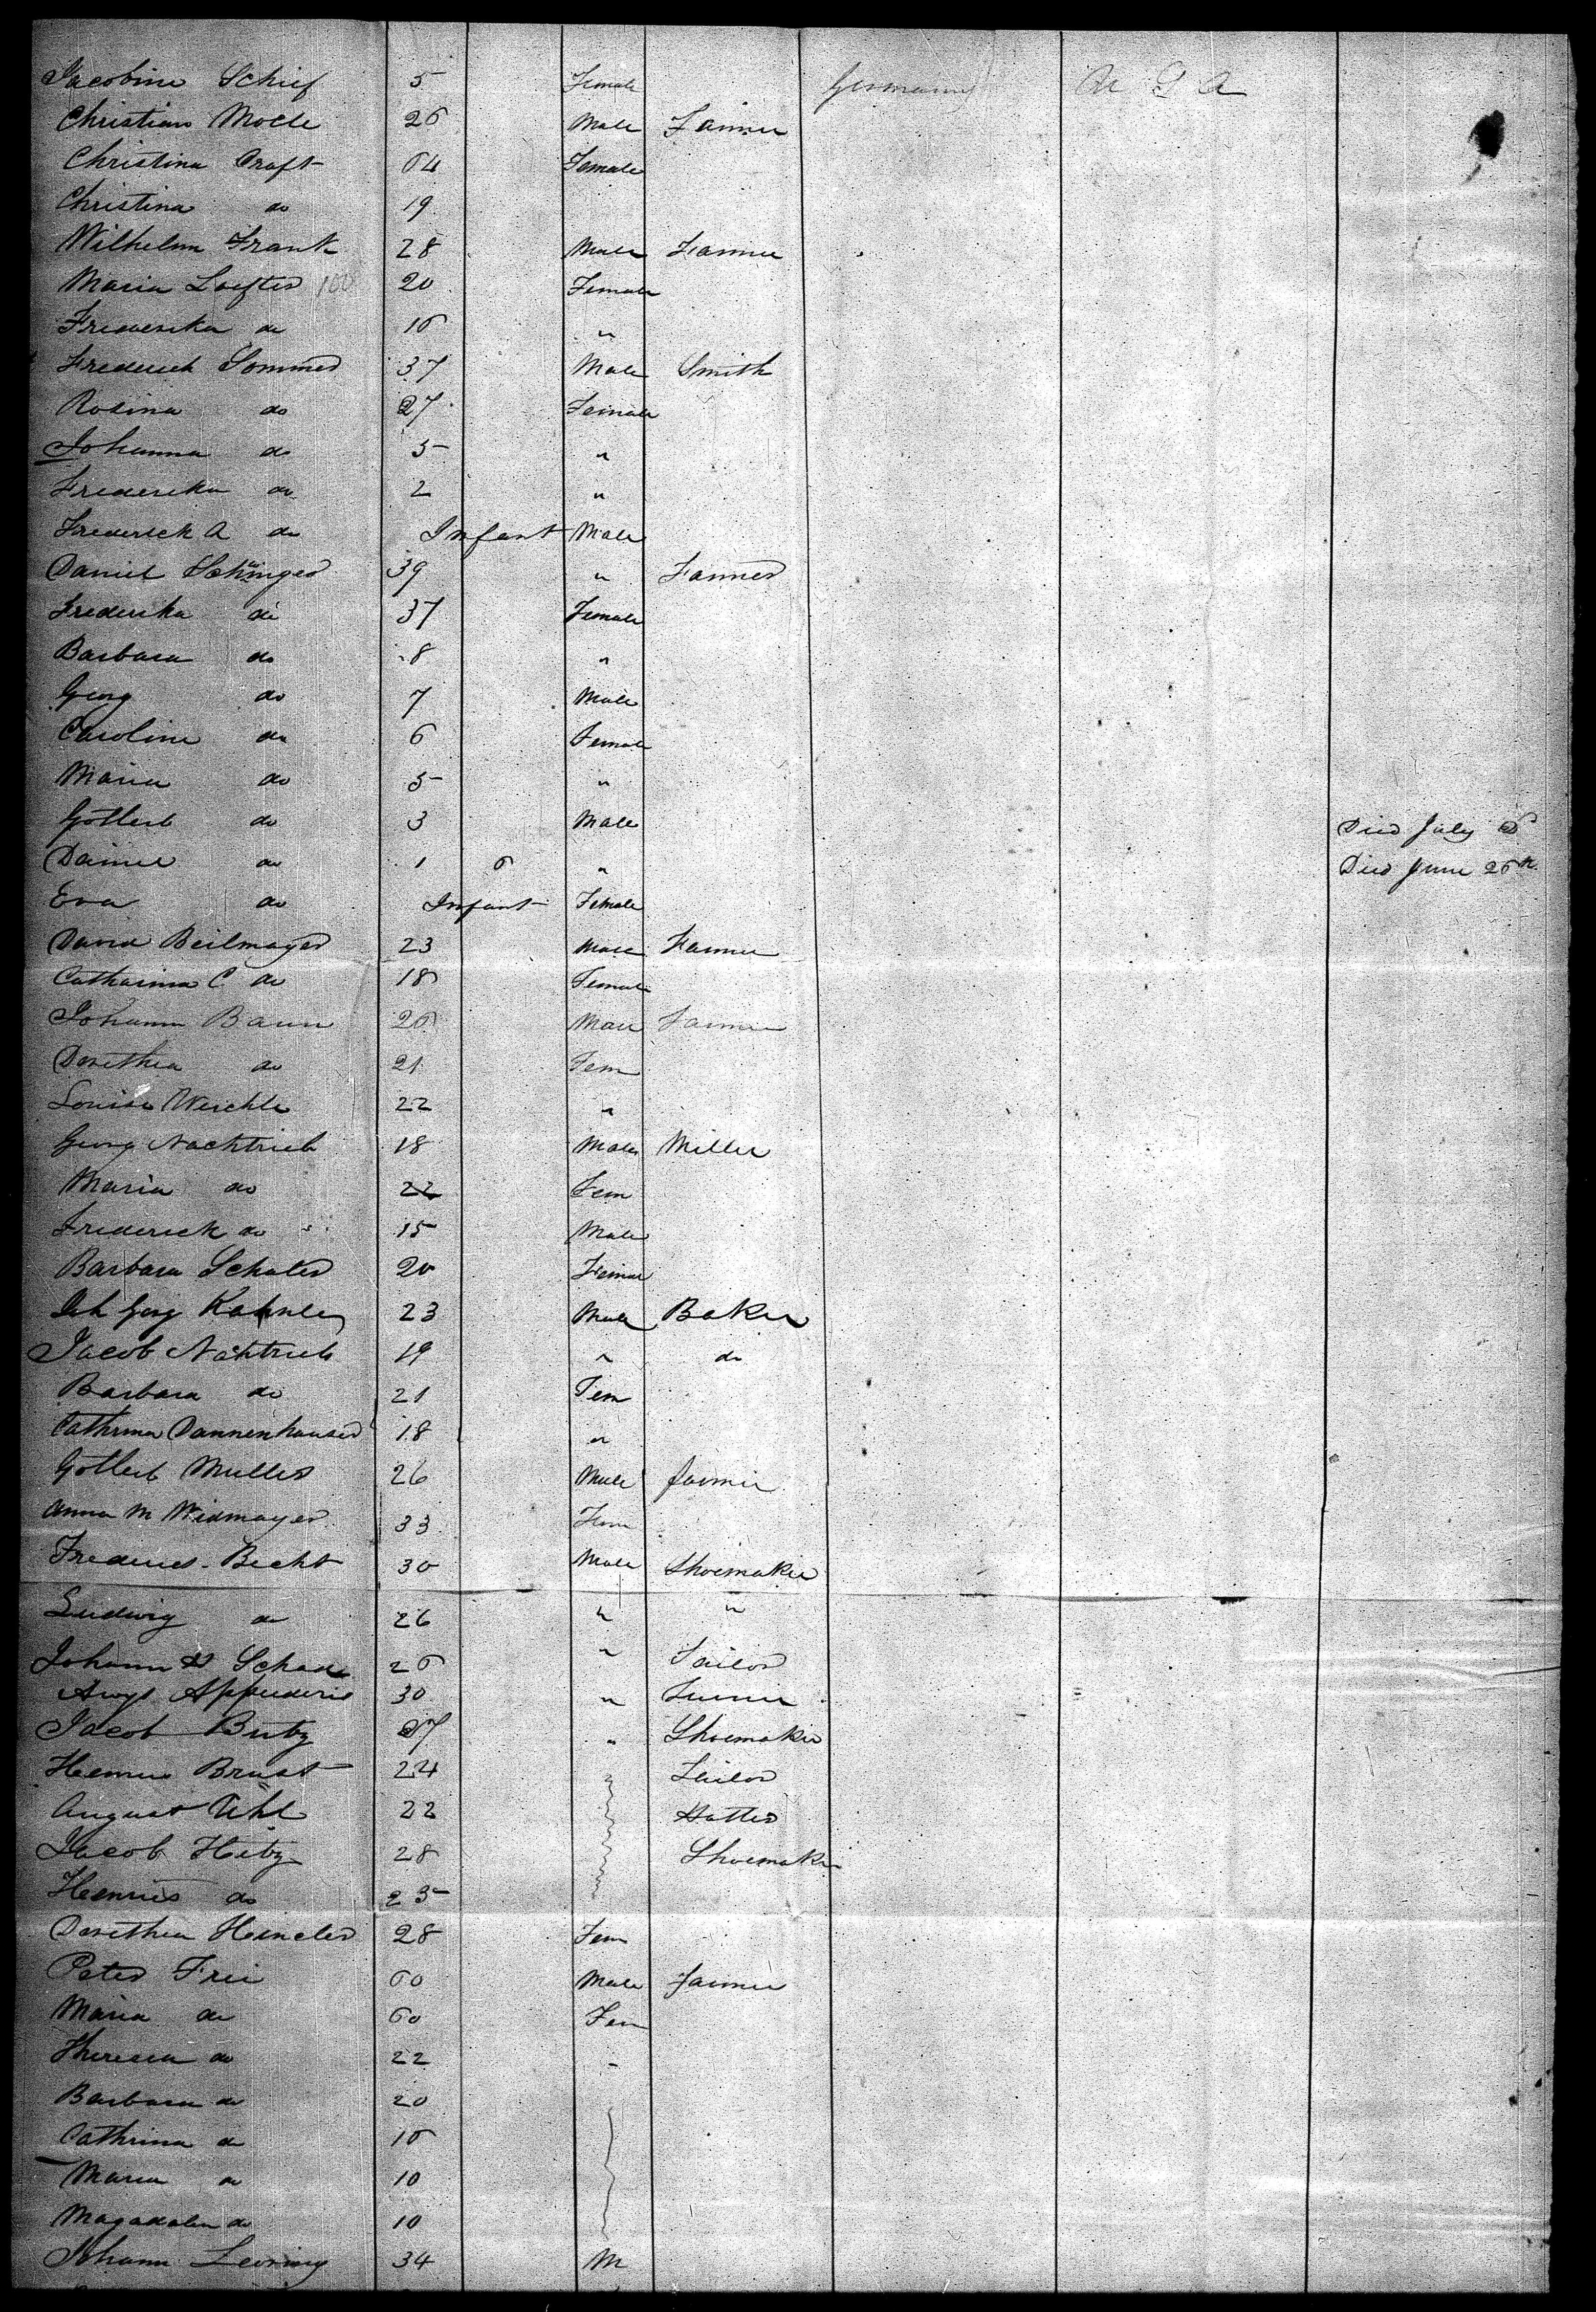 Jacobine Schief 5 Female Germany U S A
Christian Mocle 26 Male Farmer
Christina Craft 64 Female
Christina do 19
Wilhelm Frank 28 Male Farmer
Maria Loefter 100 20 Female
Frederika do 16 "
Frederick Sommer 37 Male Smith
Rosina do 27 Female
Johanna do 5 "
Frederika do 2 "
Frederick A do Infant Male
Daniel 39 " Farmer
Frederika do 37 Female
Barbara do 8 "
Georg do 7 Male
Caroline do 6 Female
Maria do 5 "
Gottleib do 3 Male Died July
Daniel do 1 6 " Died June 26th
Eva do Infant Female
David Beilmayer 23 Male Farmer
Catharina C do 18 Female
Johann Baun 26 Male Farmer
Dorethea do 21 Fem
Louisa Weichle 22 "
Georg Nachtrieb 18 Male Miller
Maria do 22 Fem
Frederick do 15 Male
Barbara Schuler 20 Female
Joh Georg Kahnle 23 Male Baker
Jacob Nachtrieb 19 " do
Barbara do 21 Fem
Cathrina Dannenhauser 18 "
Gottleib Muller 26 Male Farmer
Anna M Widmayer 33 Fem
Frederick Becht 30 Male Shoemaker
Ludwig do 26 " "
Johann Schade 26 " Tailor
30 " Farmer
Jacob Butz 27 " Shoemaker
Brust 24 Tailor
August Uhl 22 Hatter
Jacob Hitz 28 Shoemaker
Henries do 23
Dorethea Heincler 28 Fem
Peter Frei 60 Male Farmer
Maria do 60 Fem
Theresia do 22 "
Barbara do 20
Cathrina do 16
Maria do 10
Magadalen do 10
Johann 34 M